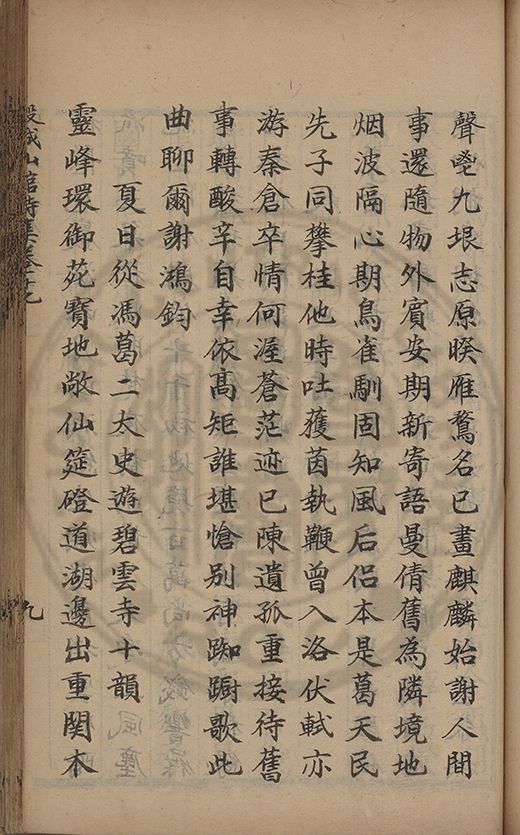 聲壆九垠志原睽雁鶩名已畫麒麟始謝人間
事還隨物外賓安期新寄語曼倩舊為隣境地
烟波隔心期鳥雀馴固知風后侣本是葛天民
先子同攀桂他時吐獲茵執鞭曾入洛伏軾亦
游秦倉卒情何渥蒼茫迹已陳遺孤重接待舊
事轉酸辛自幸依髙矩誰堪愴别神踟蹰歌此
曲聊爾謝鴻鈞
夏日從馮葛二太史遊碧雲寺十韻
靈峰環御苑寳地敞仙筵磴道湖邊出重関本
穀城山館詩集卷十九
九